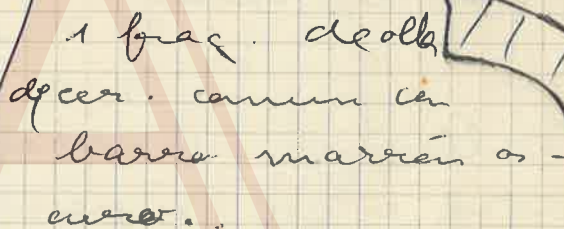 1 frag. de olla
de cer. comun con
barro marrón os-
curo.